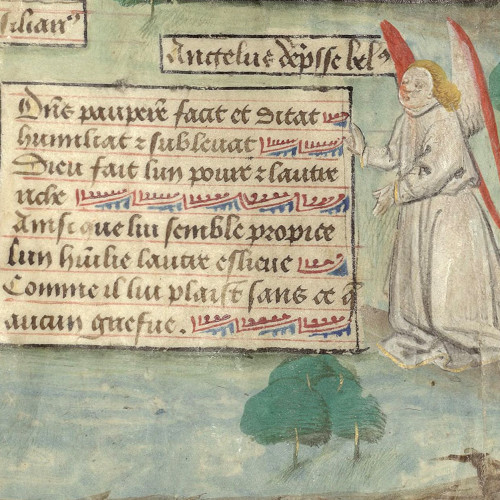 silian⁹
Angelus depsse bel⁹
Dn̄s pauperē facit et ditat
humiliat ⁊ subleuat
Dieu fait lun poure ⁊ lautre
riche
Ainsi que lui semble propice
lun hūilie lautre eslieue
Comme il lui plaist sans ce q̄
aucun griefue.